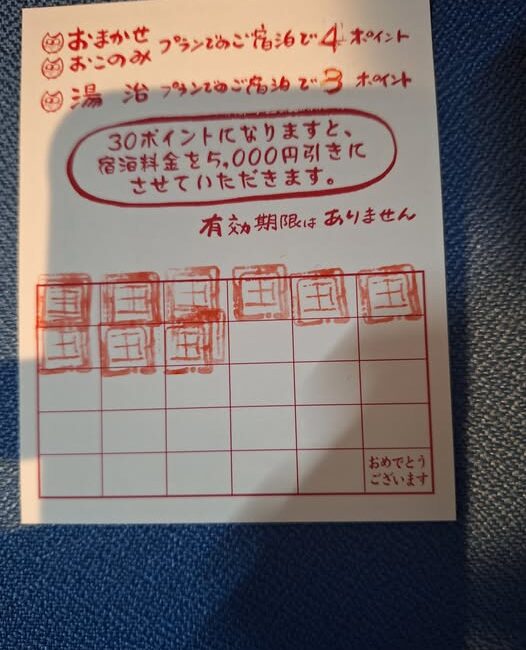 おまかせ
おこのみ プランでのご宿泊で4ポイント
湯治 プランでのご宿泊で3ポイント
30ポイントになりますと、
宿泊料金を5,000円引きに
させていただきます。
有効期限はありません
おめでとう
ございます